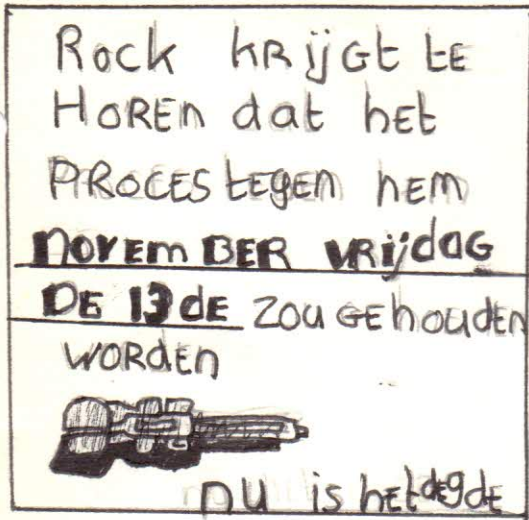 Rock kRijGt tE
HOREn dat het
PROCES tEgEn hem
novEmBER vRijdaG
DE 13 dE zou GEhoudEn
woRdEn
nu is het dE 9 dE